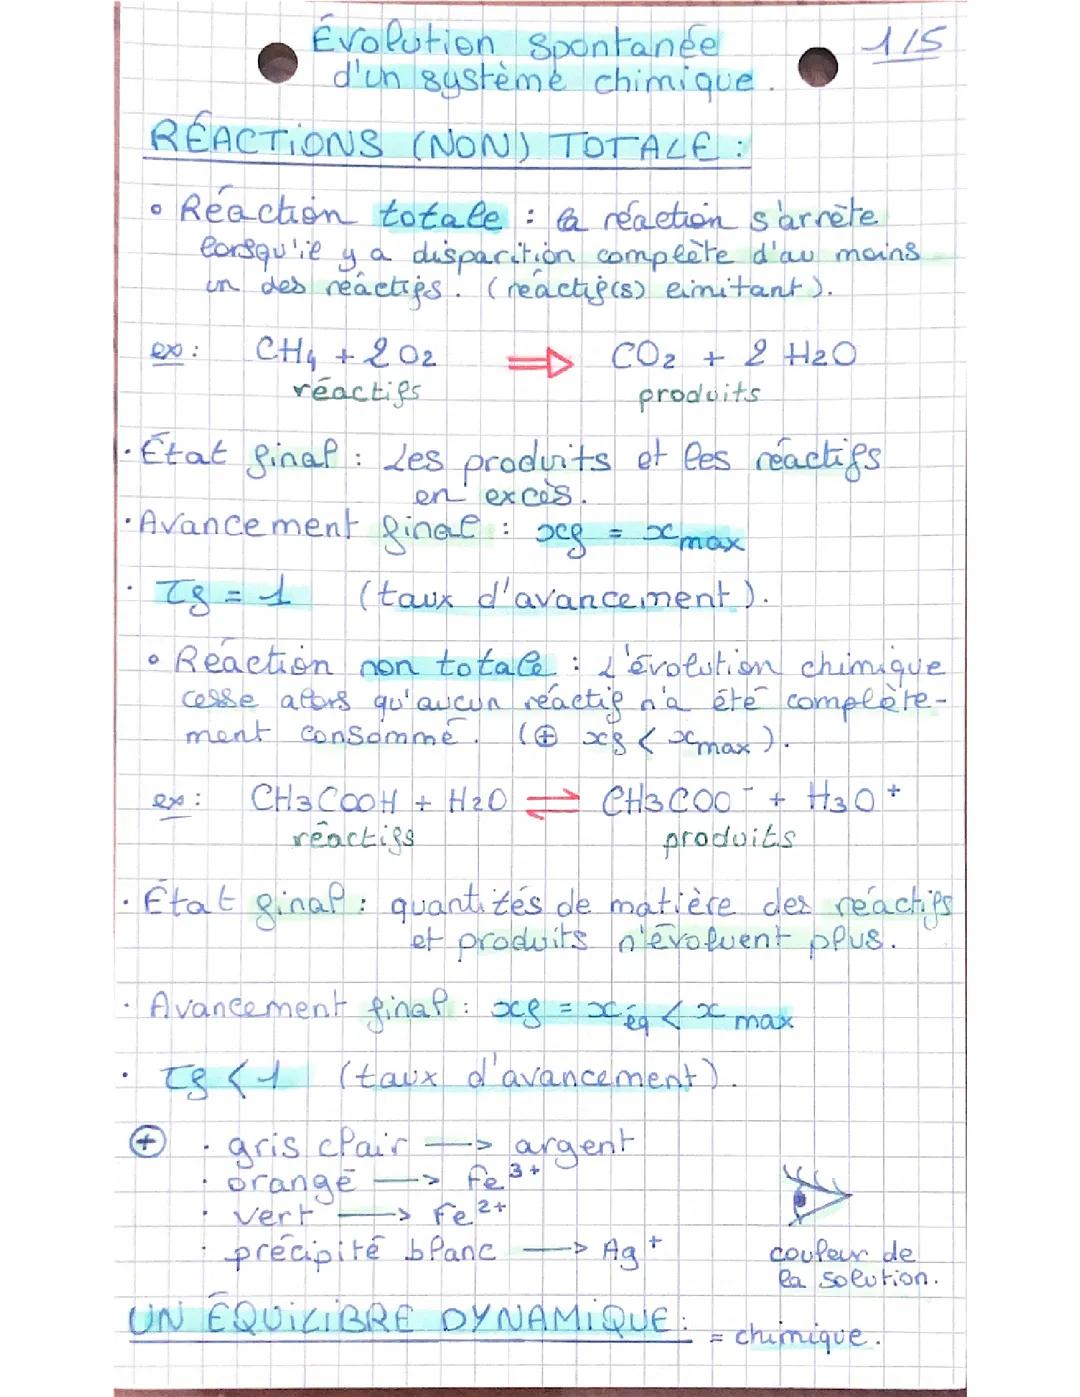 Évolution spontanée 1/5
d'un système chimique.
RÉACTIONS (NON) TOTALE :
• Réaction totale : la réaction s'arrête
lorsqu'il y a disparition complète d'au moins
un des réactifs. (réactif(s) limitant).
ex : CH4 + 2 O2 ⇒ CO2 + 2 H2O
réactifs produits
· État final : Les produits et les réactifs
en excès.
· Avancement final : xf = xmax
· τf = 1 (taux d'avancement).
• Réaction non totale : L'évolution chimique
cesse alors qu'aucun réactif n'a été complète-
ment consommé. (⊕ xf < xmax).
ex : CH3COOH + H2O ⇌ CH3COO⁻ + H3O⁺
réactifs produits
· État final : quantités de matière des réactifs
et produits n'évoluent plus.
· Avancement final : xf = xéq < xmax
· τf < 1 (taux d'avancement).
⊕ · gris clair → argent
· orangé → Fe³⁺
· vert → Fe²⁺
· précipité blanc → Ag⁺
couleur de
la solution.
UN ÉQUILIBRE DYNAMIQUE : = chimique.